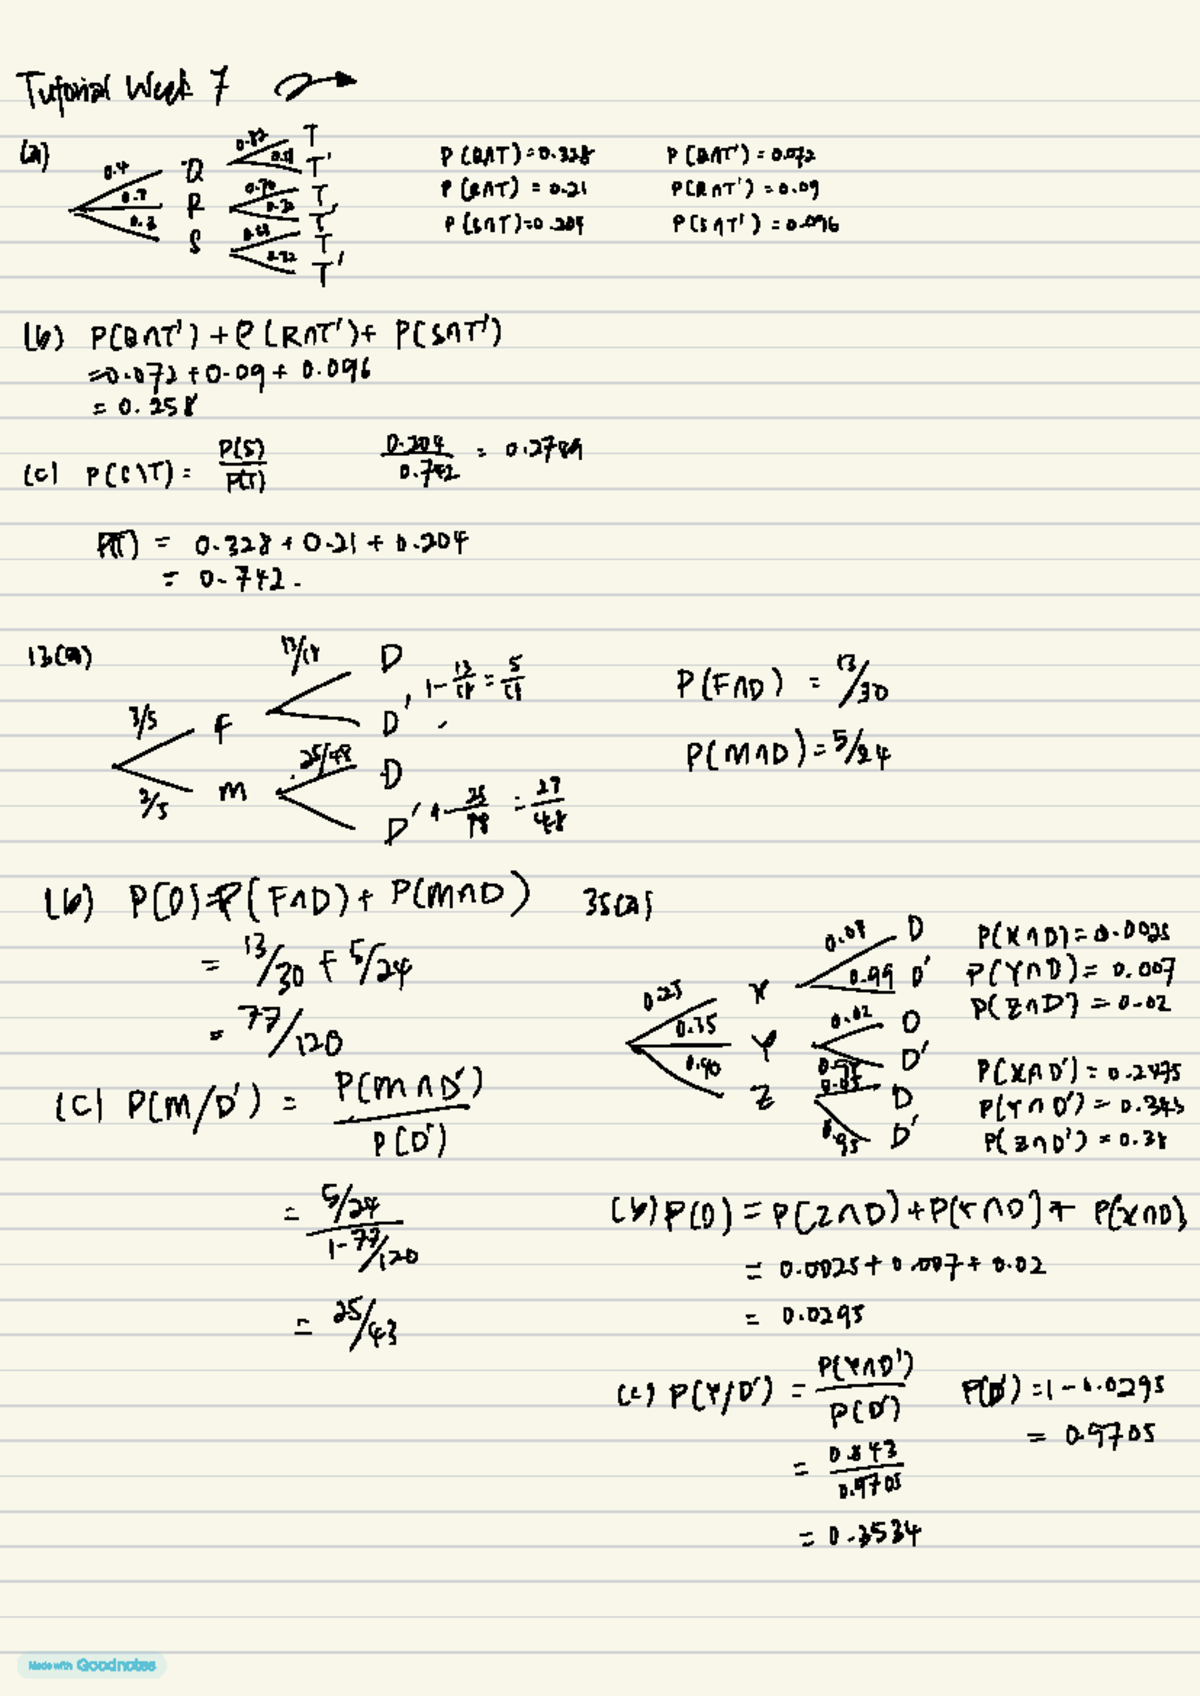 Tutorial Week 7
(a)
0.4 Q 0.82 T
T'
0.7 R 0.70 T
0.30 T'
0.3 S 0.68 T
0.32 T'
P(Q∩T)=0.328 P(Q∩T')=0.072
P(R∩T)=0.21 P(R∩T')=0.09
P(S∩T)=0.204 P(S∩T')=0.096
(b) P(Q∩T')+P(R∩T')+P(S∩T')
=0.072+0.09+0.096
=0.258
(c) P(S\T)= P(S)/P(T) 0.204/0.742 = 0.2749
P(T) = 0.328+0.21+0.204
= 0.742.
13(a)
3/5 F 13/18 D
D' 1-13/18=5/18
2/5 M 25/48 D
D' 1-25/48 = 27/48
P(F∩D) = 13/30
P(M∩D)=5/24
(b) P(D)=P(F∩D)+P(M∩D)
= 13/30 + 5/24
= 77/120
(c) P(M/D') = P(M∩D')/P(D')
= 5/24 / 1-77/120
= 25/43
35(a)
0.25 X D
0.99 D'
0.35 Y 0.02 D
D'
0.40 Z 0.05 D
0.95 D'
P(X∩D)=0.0025
P(Y∩D)=0.007
P(Z∩D)=0.02
P(X∩D')=0.2475
P(Y∩D')=0.343
P(Z∩D')=0.38
(b) P(D) = P(Z∩D)+P(Y∩D)+P(X∩D)
= 0.0025+0.007+0.02
= 0.0295
(c) P(Y/D') = P(Y∩D')/P(D') P(D')=1-0.0295
= 0.9705
= 0.343/0.9705
= 0.3534
Made with Goodnotes